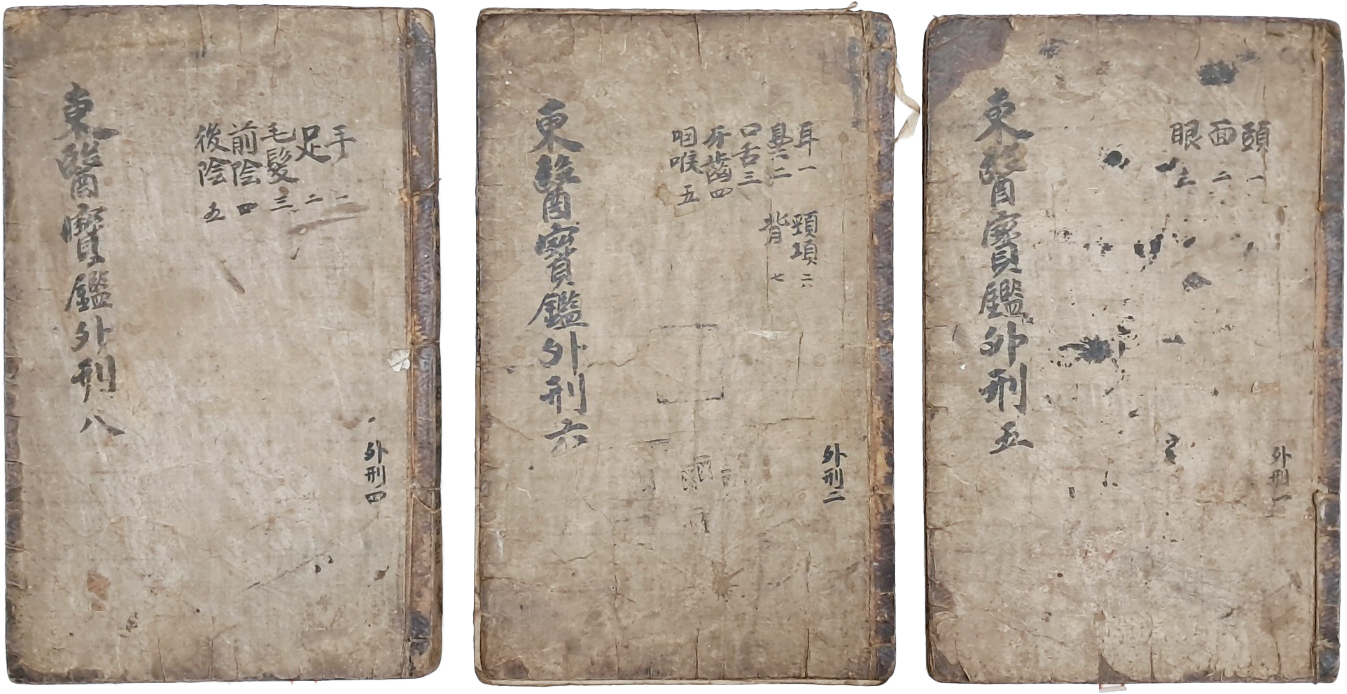 外刑一
頭一
面二
眼三
東醫寶鑑外刑五
外刑二
耳一
鼻二
口舌三
牙齒四
咽喉五
頸項六
背七
東醫寶鑑外刑六
外刑四
手一
足二
毛髮三
前陰四
後陰五
東醫寶鑑外刑八